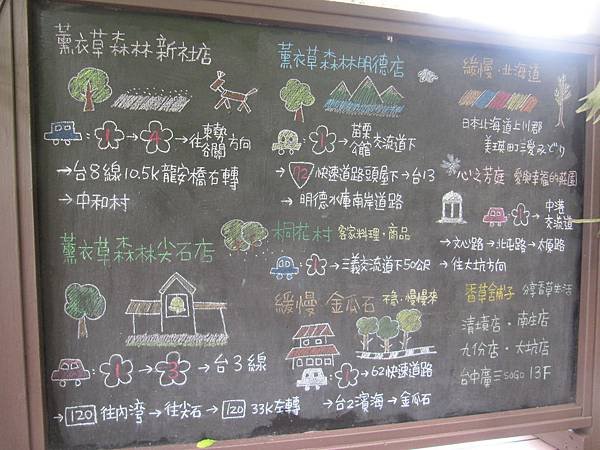 薰衣草森林 新社店
: 1 → 4 → 往 東勢 谷關 方向
→ 台8線 10.5k 龍安橋右轉
→ 中和村
薰衣草森林明德店
: 1 → 苗栗 公館 交流道下
→ 72 快速道路頭屋下 → 台13
→ 明德水庫南岸道路
緩慢·北海道
日本北海道上川郡
美瑛町三愛みどり
心之芳庭 愛與幸福的莊園
: 1 → 中港 交流道
→ 文心路 → 北屯路 → 太原路
→ 往大坑方向
薰衣草森林尖石店
: 1 → 3 → 台3線
→ 120 往內灣 → 往尖石 → 120 33K左轉
桐花村 客家料理·商品
: 1 → 三義交流道下50公尺
緩慢 金瓜石 不急·慢慢來
: 1 → 62快速道路
→ 台2濱海 → 金瓜石
香草舖子 分享香草生活
清境店·南庄店
九份店·大坑店
台中廣三SOGO 13F